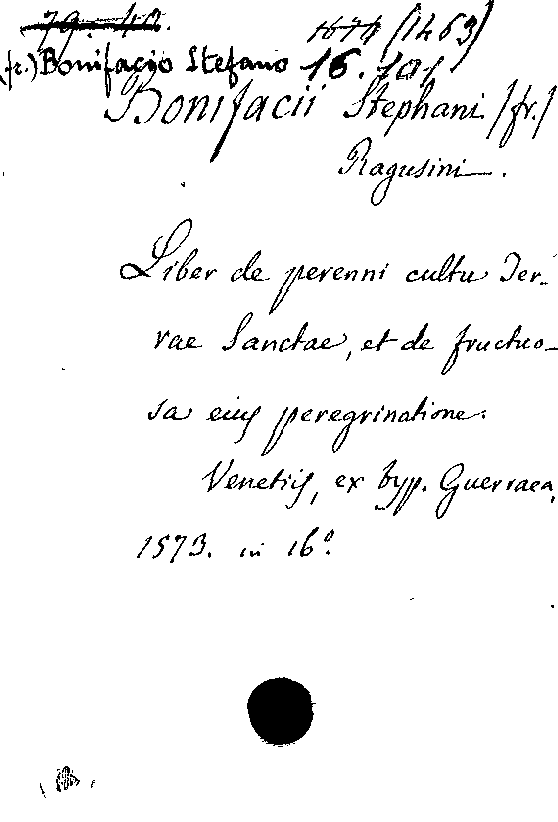 79. 40.
1874 (1463)
(fr.) Bonifacio Stefano 16. 101
Bonifacii Stephani /fr./
Ragusini.
Liber de perenni cultu Ter-
rae Sanctae, et de fructuo-
sa eius peregrinatione.
Venetiis, ex typ. Guerraea,
1573. in 16º.